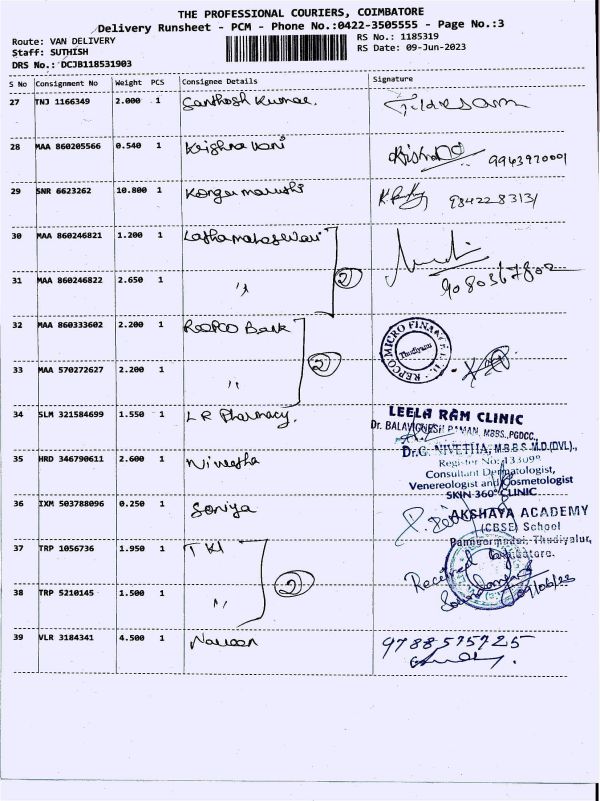 THE PROFESSIONAL COURIERS, COIMBATORE
Delivery Runsheet - PCM - Phone No.:0422-3505555 - Page No.:3
Route: VAN DELIVERY
RS No.: 1185319
Staff: SUTHISH
RS Date: 09-Jun-2023
DRS No.: DCJB118531903
S No Consignment No Weight PCS Consignee Details Signature
27 TNJ 1166349 2.000 1 Santhosh Kumar.
28 MAA 860205566 0.540 1 Krishna Vani 9943970001
29 SNR 6623262 10.800 1 9842283131
30 MAA 860246821 1.200 1
31 MAA 860246822 2.650 1 " 2 9080367802
32 MAA 860333602 2.200 1 REPCO Bank
REPCO MICRO FINANCE
Thudiyalur
33 MAA 570272627 2.200 1 " 2
34 SLM 321584699 1.550 1 L R Pharmacy.
LEELA RAM CLINIC
Dr. BALAVIGNESH RAMAN, MBBS.,PGDCC.,
Dr.G. NIVETHA, M.B.B.S.,M.D.(DVL).,
35 HRD 346790611 2.600 1 Nivetha
Register No: 133098
Consultant Dermatologist,
Venereologist and Cosmetologist
SKIN 360° CLINIC
36 IXM 503788096 0.250 1 Soniya
AKSHAYA ACADEMY
(CBSE) School
Thudiyalur,
Coimbatore.
37 TRP 1056736 1.950 1 TKI
Received by
38 TRP 5210145 1.500 1 " 2
39 VLR 3184341 4.500 1 Naveen 9788575725